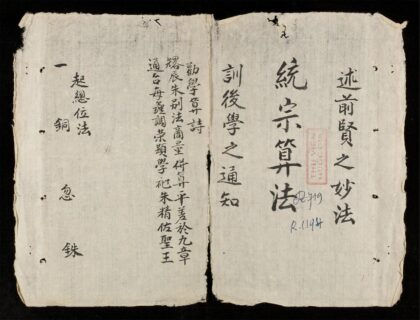 述前賢之妙法
統宗算法
R.1194
訓後學之通知
勸學算詩
辰朱別法商量併算平差於九章
通每調類學朱精佐聖王
起總位法
一 銅 忽 銖